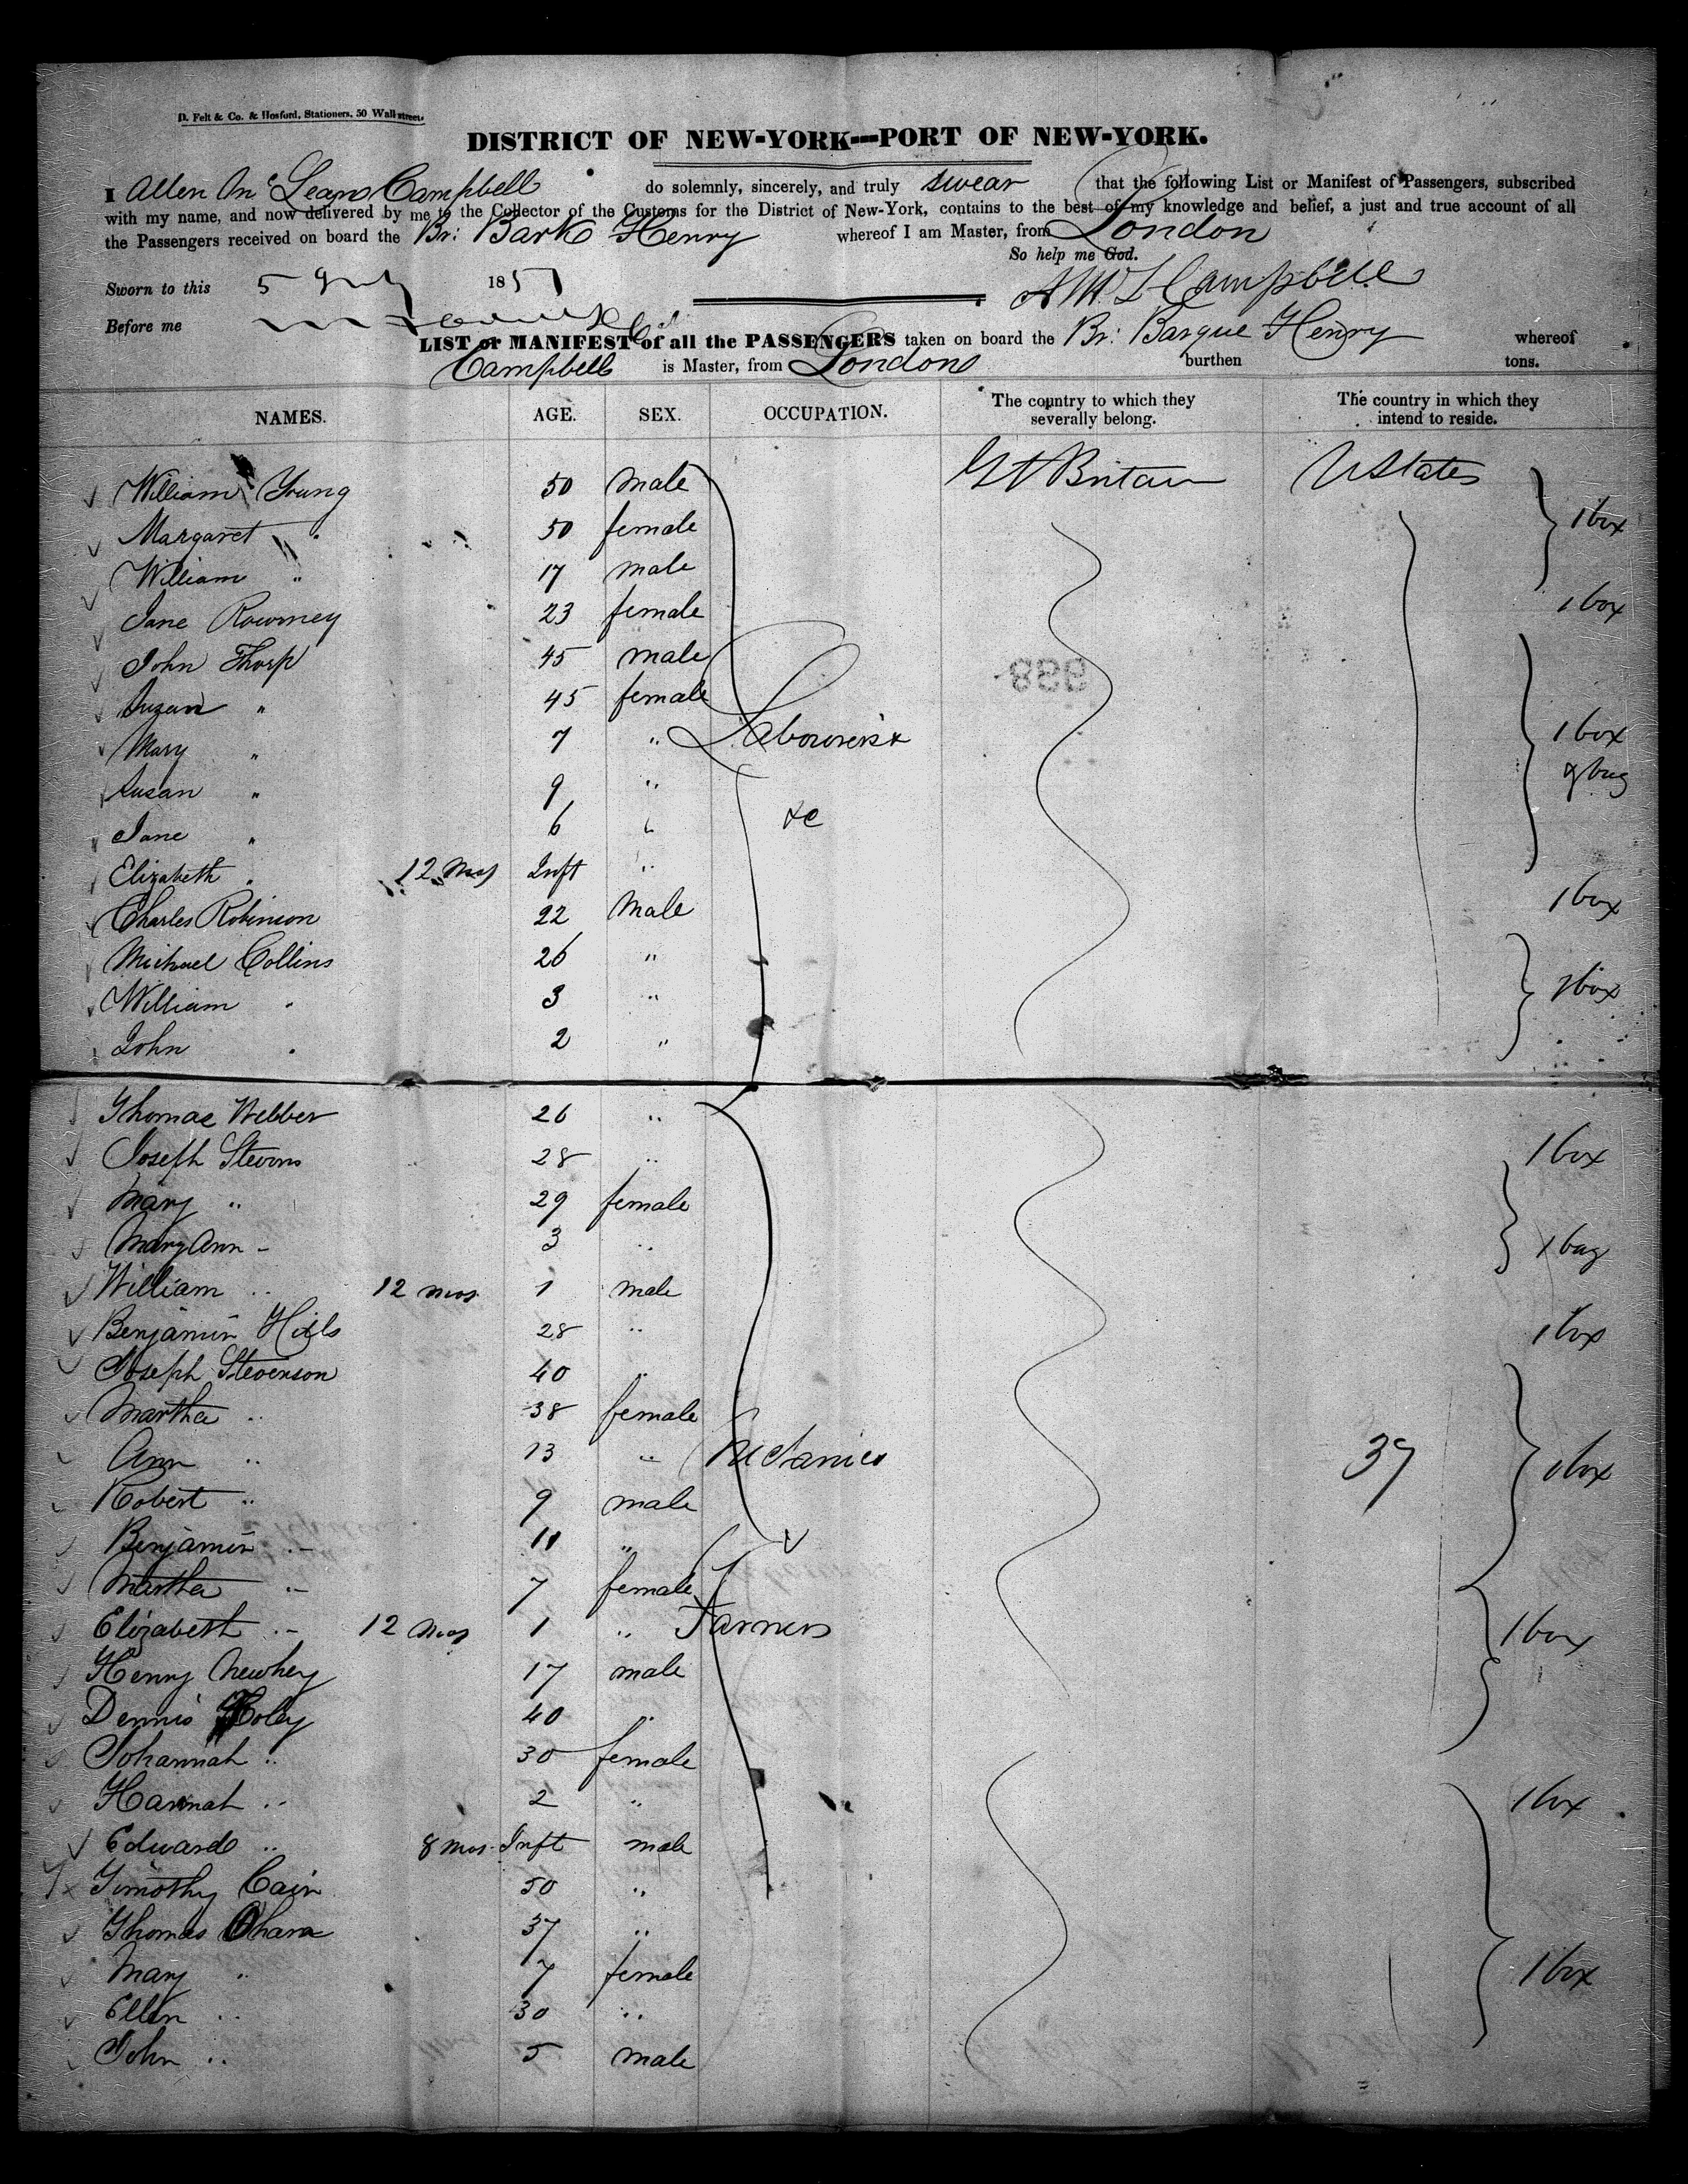 D. Felt & Co. & Hosford, Stationers, 50 Wall street.
DISTRICT OF NEW-YORK---PORT OF NEW-YORK.
I Allen Mc Leans Campbell do solemnly, sincerely, and truly swear that the following List or Manifest of Passengers, subscribed
with my name, and now delivered by me to the Collector of the Customs for the District of New-York, contains to the best of my knowledge and belief, a just and true account of all
the Passengers received on board the Br: Bark Henry whereof I am Master, from London
So help me God.
Sworn to this 5 July 1851
A McL Campbell
Before me
LIST or MANIFEST of all the PASSENGERS taken on board the Br: Barque Henry whereof
Campbell is Master, from London burthen tons.
NAMES. AGE. SEX. OCCUPATION. The country to which they severally belong. The country in which they intend to reside.
William Young 50 male Gt Britain U States
Margaret " 50 female 1 box
William " 17 male
Jane Rowrney 23 female 1 box
John Thorp 45 male
Suzan " 45 female
Mary " 7 " Labourers & 1 box
Susan " 9 " & bag
Jane " 6 " &c
Elizabeth " 12 mos Inft "
Charles Robinson 22 Male 1 box
Michael Collins 26 "
William " 3 " 1 box
John " 2 "
Thomas Webber 26 "
Joseph Stevens 28 " 1 box
Mary " 29 female
Mary Ann - 3 " 1 bag
William " 12 mos 1 male
Benjamin Hills 28 " 1 box
Joseph Stevenson 40 "
Martha " 38 female
Ann " 13 " Mchanics 37 1 box
Robert " 9 male
Benjamin " 11 "
Martha " 7 female
Elizabeth " 12 mos 1 " Farmers 1 box
Henry Newhey 17 male
Dennis Foley 40 "
Johannah " 30 female
Hannah " 2 " 1 box
Edward " 8 mos Inft male
Timothy Cain 50 "
Thomas Ohara 37 "
Mary " 7 female 1 box
Ellen " 30 "
John " 5 male